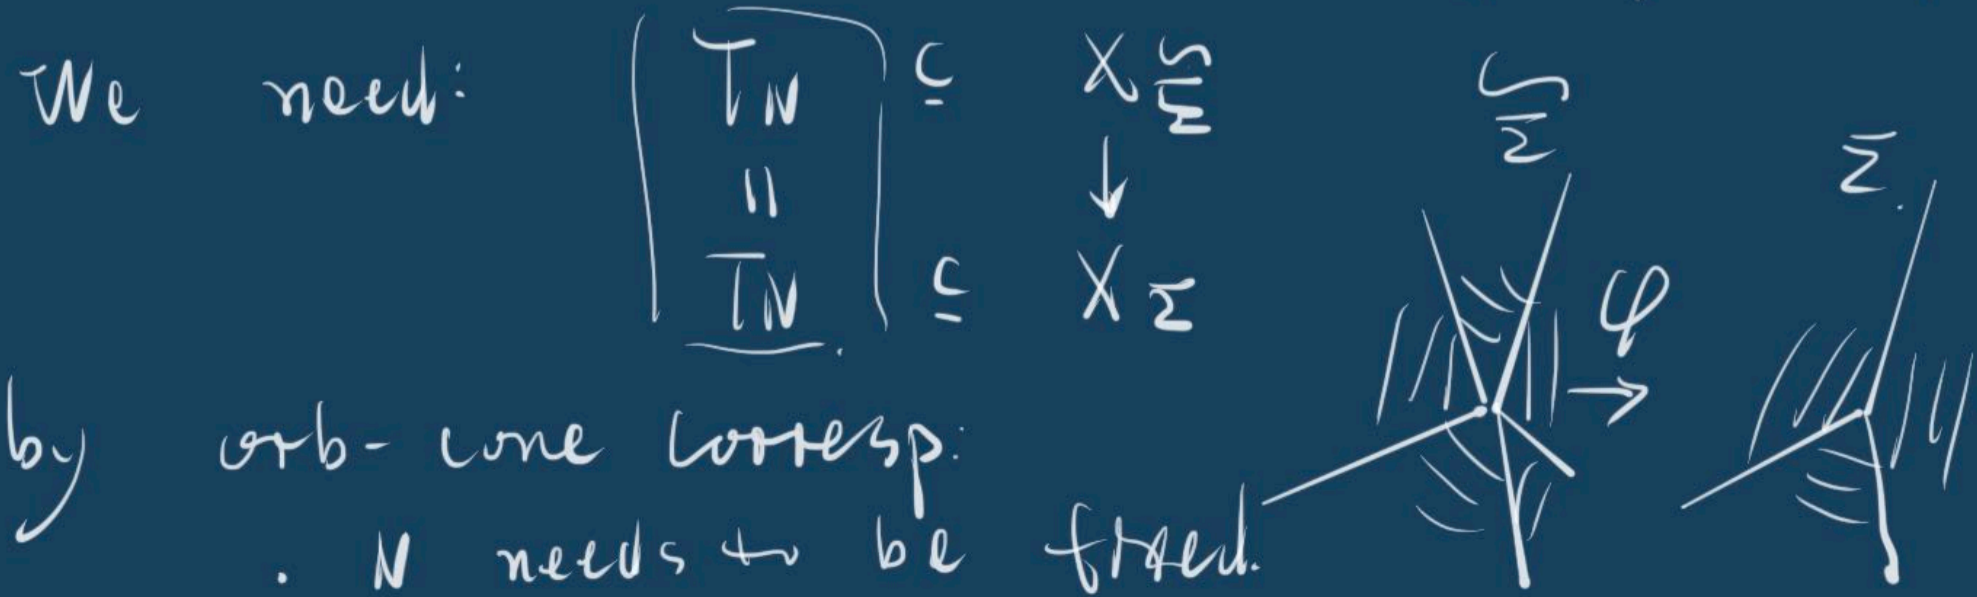 We need: T_N ⊆ X_Σ̃ Σ̃ Σ
|| ↓
T_N ⊆ X_Σ φ →
by orb-cone corresp:
. N needs to be fixed.